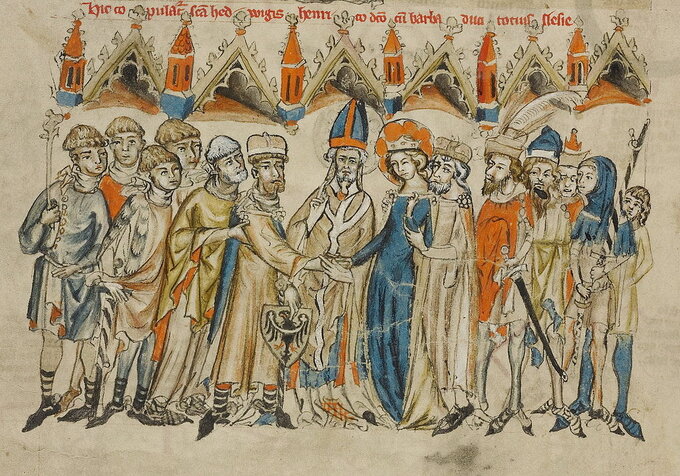 Hic co pulat˜ sc̃a hed wigis henri co dc̃o cũ barba duci tocius slesie